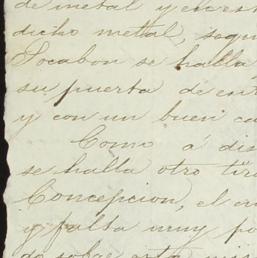 de metal y en est
dicho metal, segu
Socabon se halla
su puerta de ent
y con un buen ca
Como á dis
se halla otro tir
Concepcion, el cu
y falta muy po
do sobre esta